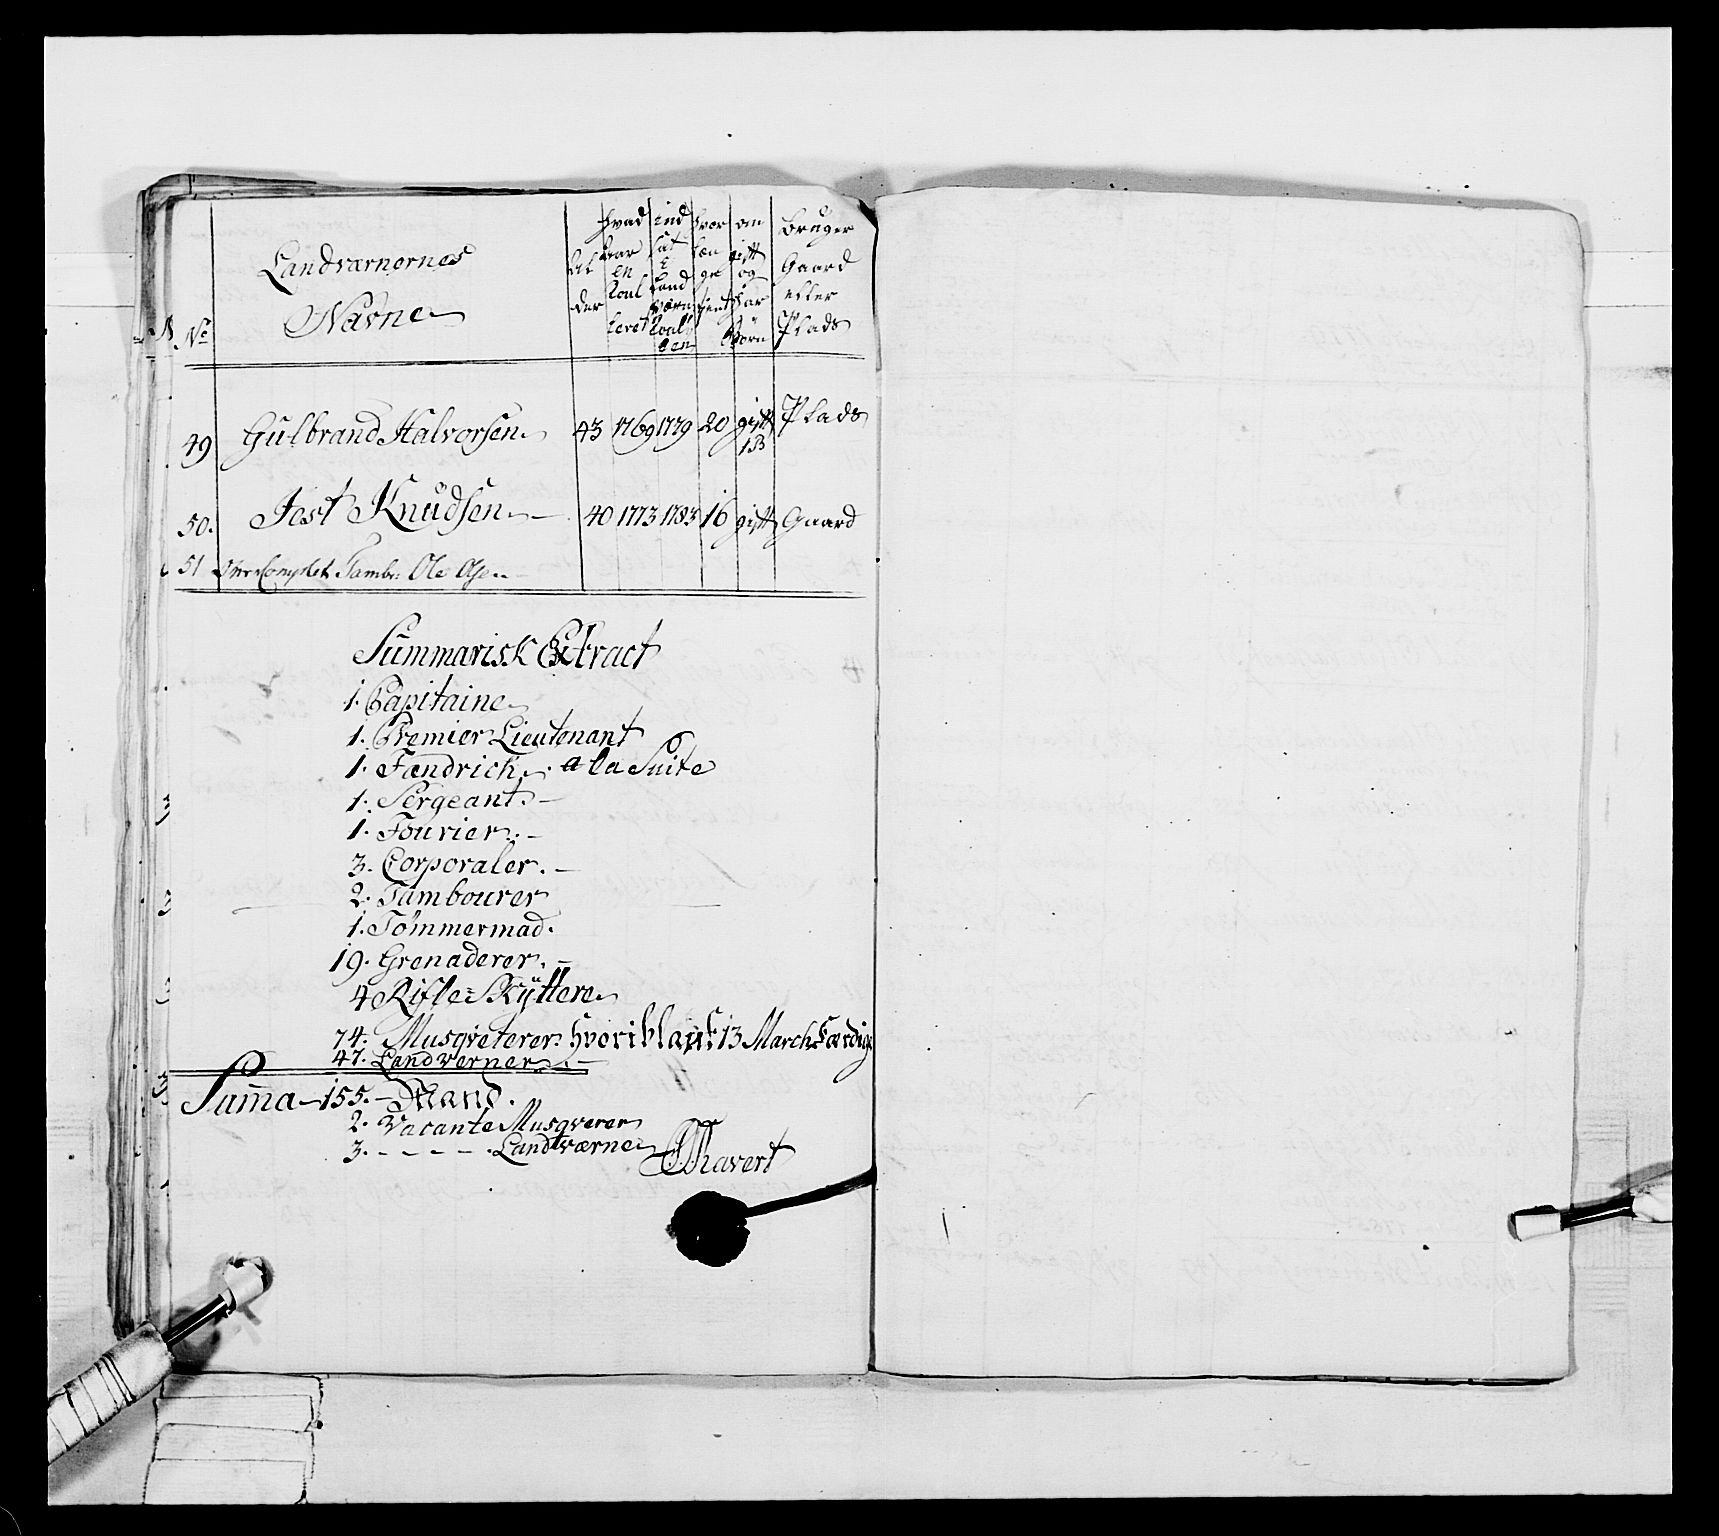 No
Landværnernes
Navne
Al
der
hvad
Aar
en
roul
leret
ind
sat
i
Land
værn
roul
len
hvor
læn
ge
tjent
om
gift
og
har
Børn
Bruger
Gaard
eller
Plads
49 Gulbrand Halvorsen 43 1769 1779 20 gift 1 B Plads
50. Jost Knudsen 40 1773 1783 16 gift Gaard
51 Over Complet Tambr: Ole Olsen
Summarisk Extract
1. Capitaine
1. Premier Lieutenant
1. Fændrich. a la Suite
1. Sergeant.
1. Fourier.
3. Corporaler.
2. Tambourer
1. Tømmermad.
19. Grenaderer.
4 Rifle-Skyttere
74. Musqveterer hvoriblant 13 March-Færdige
47. Landverner
Sum̄a 155. Mand.
2. Vacante Musqverer
3. - - - - Landtværne